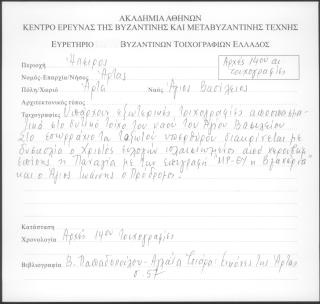 ΑΚΑΔΗΜΙΑ ΑΘΗΝΩΝ
ΚΕΝΤΡΟ ΕΡΕΥΝΑΣ ΤΗΣ ΒΥΖΑΝΤΙΝΗΣ ΚΑΙ ΜΕΤΑΒΥΖΑΝΤΙΝΗΣ ΤΕΧΝΗΣ
ΕΥΡΕΤΗΡΙΟ ΒΥΖΑΝΤΙΝΩΝ ΤΟΙΧΟΓΡΑΦΙΩΝ ΕΛΛΑΔΟΣ
Περιοχή Ήπειρος
Αρχές 14ου αι
τοιχογραφίες
Νομός-Επαρχία/Νήσος Άρτας
Πόλη/Χωριό Άρτα Ναός Άγιος Βασίλειος
Αρχιτεκτονικός τύπος
Τοιχογραφίες Υπάρχουν εξωτερικές τοιχογραφίες αποσπασμα-
τικά στο δυτικό τοίχο του ναού του Αγίου Βασιλείου
Στο εσωράχιο του τυφλού υπερθύρου διακρίνεται με
δυσκολία ο Χριστός ευλογών πλαισιωμένος από χερουβείμ
επίσης η Παναγία με την επιγραφή "ΜΡ-ΘΥ η Βλαχέρνα"
και ο Άγιος Ιωάννης ο Πρόδρομος.
Κατάσταση
Χρονολογία Αρχές 14ου τοιχογραφίες
Βιβλιογραφία Β. Παπαδοπούλου - Αγλαΐα Τσιάρα - Εικόνες της Άρτας
σ. 57